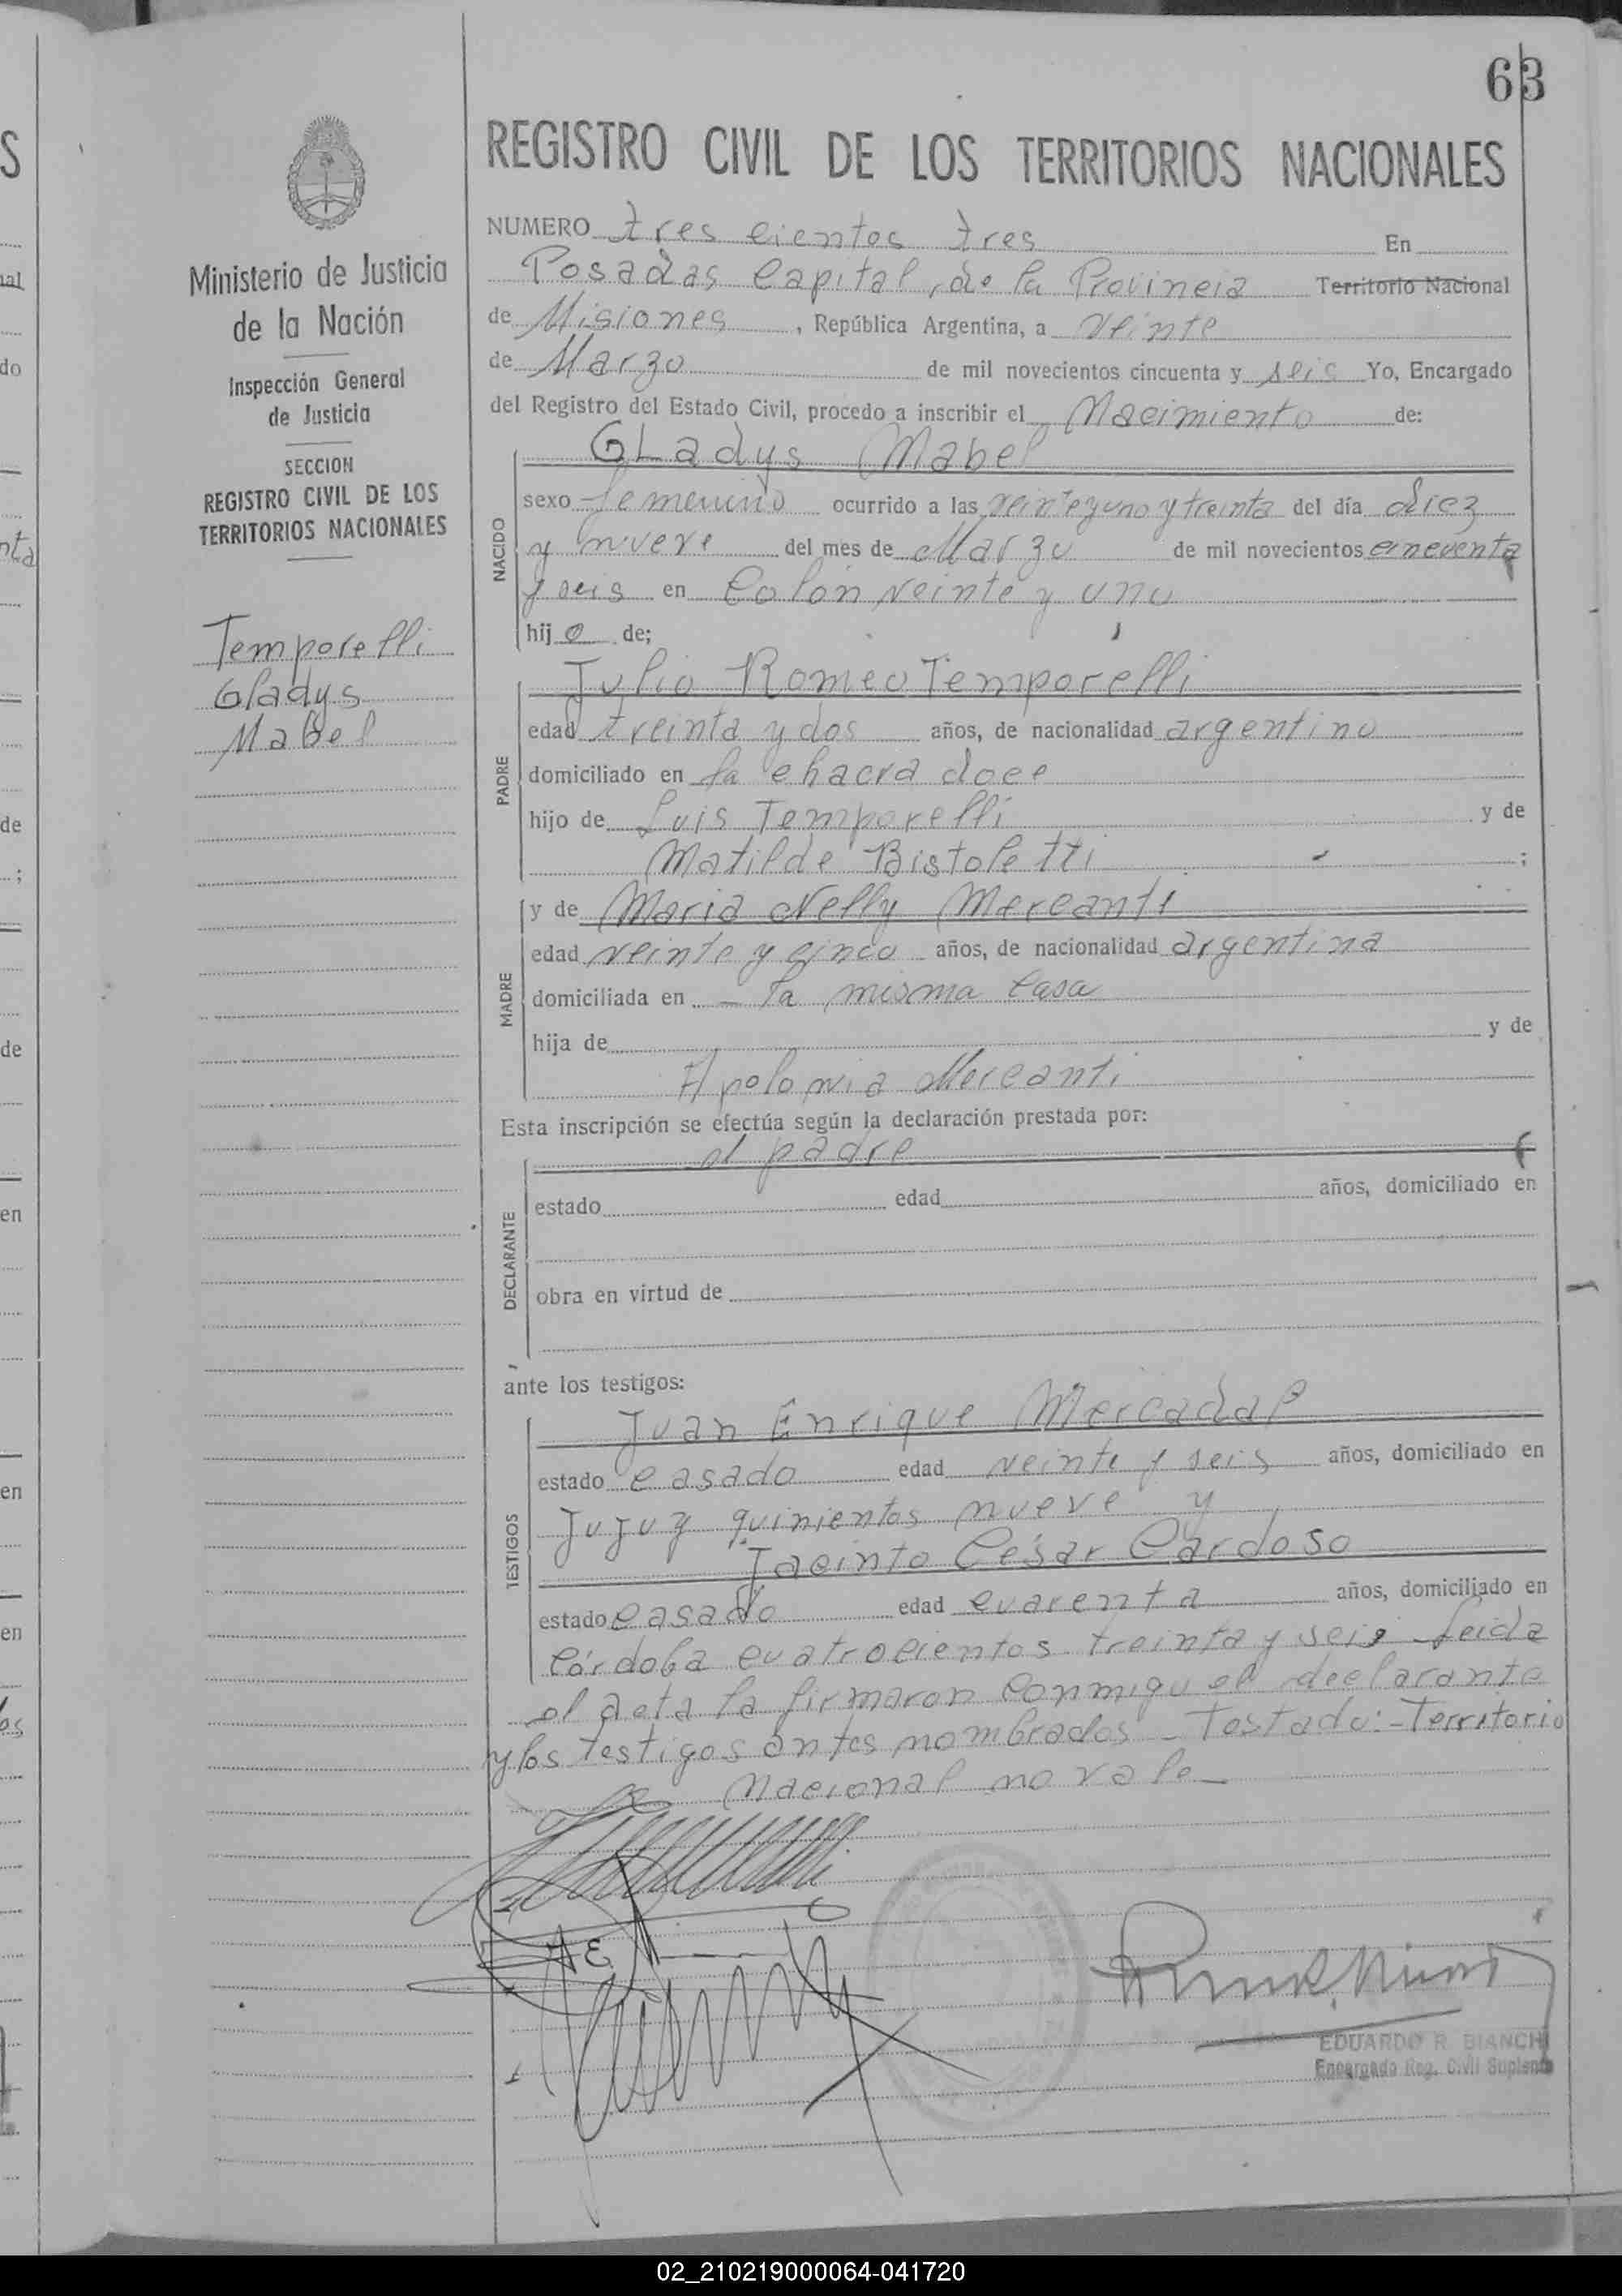 63
REGISTRO CIVIL DE LOS TERRITORIOS NACIONALES
Ministerio de Justicia
de la Nación
Inspección General
de Justicia
SECCION
REGISTRO CIVIL DE LOS
TERRITORIOS NACIONALES
Temporelli
Gladys
Mabel
NUMERO tres cientos tres En
Posadas Capital, de la Provincia Territorio Nacional
de Misiones, República Argentina, a veinte
de Marzo de mil novecientos cincuenta y seis Yo, Encargado
del Registro del Estado Civil, procedo a inscribir el Nacimiento de:
GLadys Mabel
NACIDO
sexo femenino ocurrido a las veinteyuno y treinta del día diez
y nueve del mes de Marzo de mil novecientos cincuenta
y seis en Colón veinte y uno
hij o de;
Julio Romeo Temporelli
PADRE
edad treinta y dos años, de nacionalidad argentino
domiciliado en la chacra doce
hijo de Luis Temporelli y de
Matilde Bistoletti ;
MADRE
y de Maria Nelly Mercanti
edad veinte y cinco años, de nacionalidad argentina
domiciliada en - la misma Casa
hija de y de
Apolonia Mercanti
Esta inscripción se efectúa según la declaración prestada por:
el padre
DECLARANTE
estado edad años, domiciliado en
obra en virtud de
ante los testigos:
Juan Enrique Mercadal
TESTIGOS
estado casado edad veinte y seis años, domiciliado en
Jujuy quinientos nueve y
Jacinto César Cardoso
estado casado edad cuarenta años, domiciliado en
Córdoba cuatrocientos treinta y seis Leida
el acta la firmaron conmigo el declarante
y los testigos antes nombrados - Testado: - Territorio
Nacional no vale -
EDUARDO R. BIANCHI
Encargado Reg. Civil Suplente
02_210219000064-041720